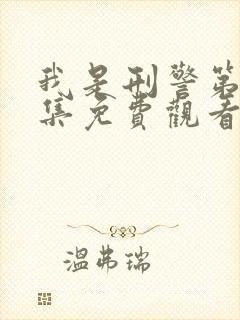 我是刑警第
集免費觀看
溫弗瑞